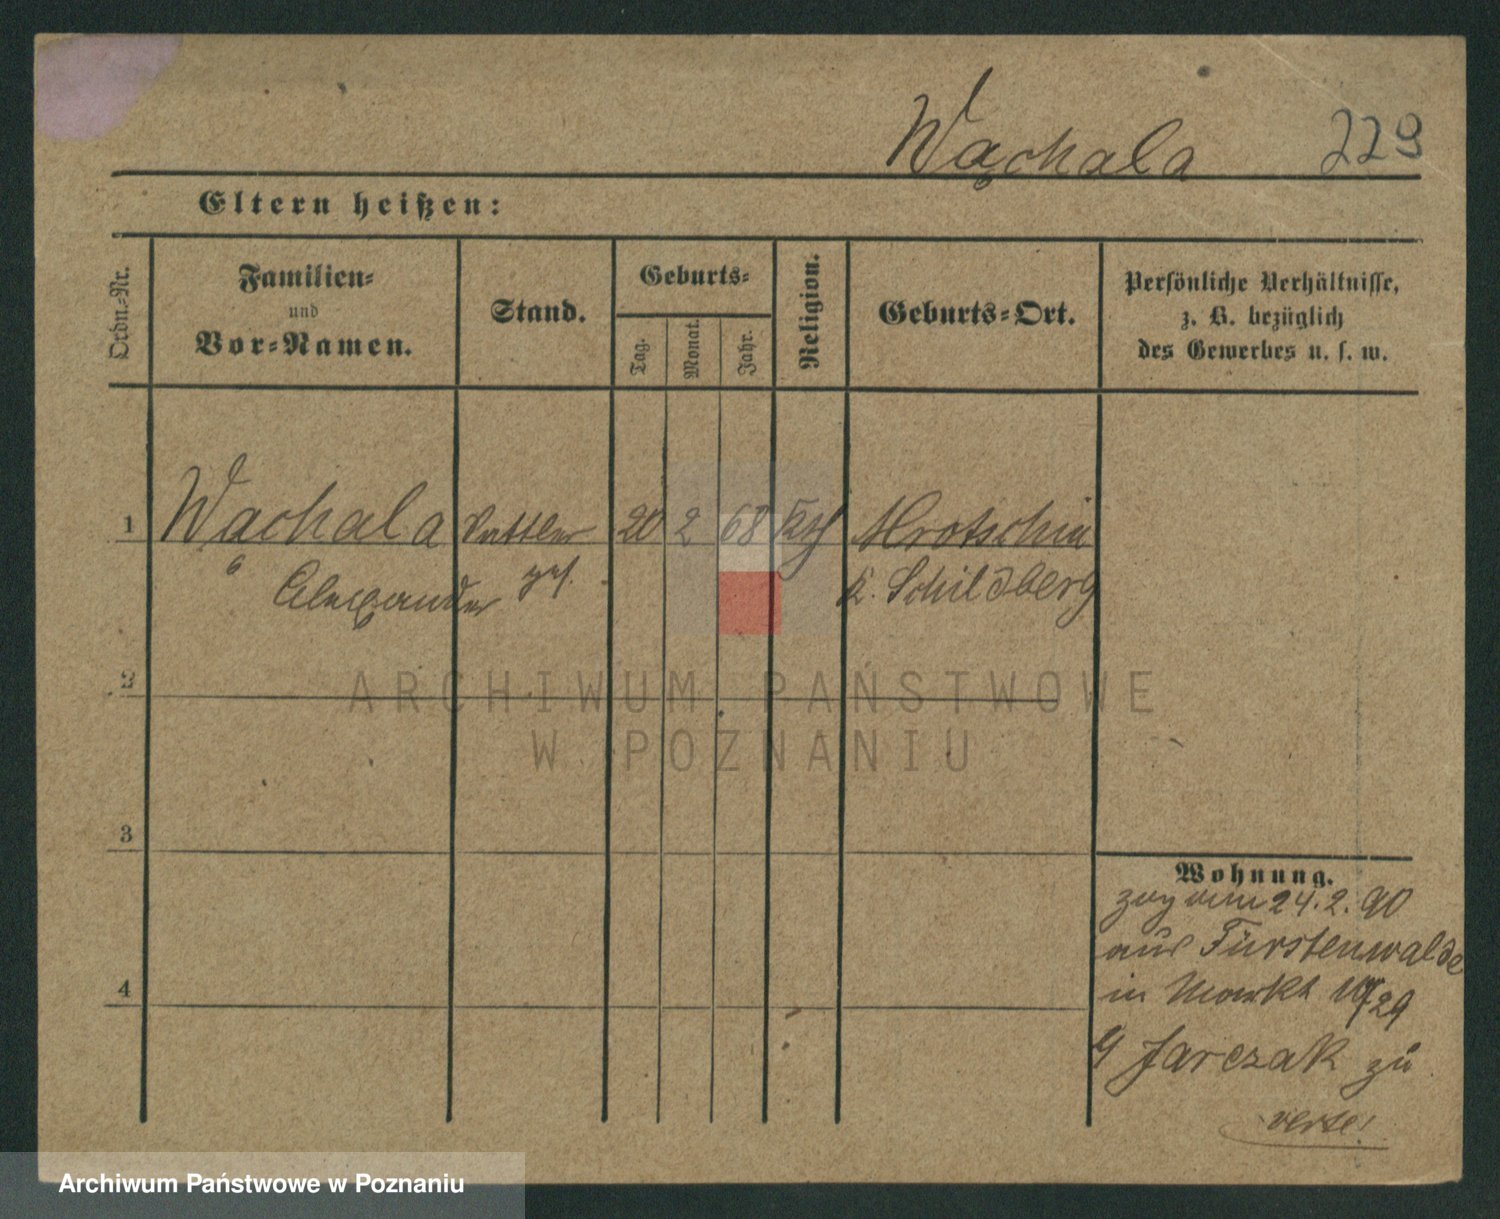 Wąchala 229
Eltern heißen:
Ordn.-Nr.
Familien-
und
Vor-Namen.
Stand.
Geburts-
Tag.
Monat.
Jahr.
Religion.
Geburts-Ort.
Persönliche Verhältnisse,
z. B. bezüglich
des Gewerbes u. s. w.
1 Wąchala Sattler 20 2 68 Kth Mrotschin
Alexander ges. K. Schildberg
2
3
4
Wohnung.
zog am 24.2.90
aus Fürstenwalde
in Markt 29
Jarczak zu
verte!
ARCHIWUM PAŃSTWOWE
W POZNANIU
Archiwum Państwowe w Poznaniu